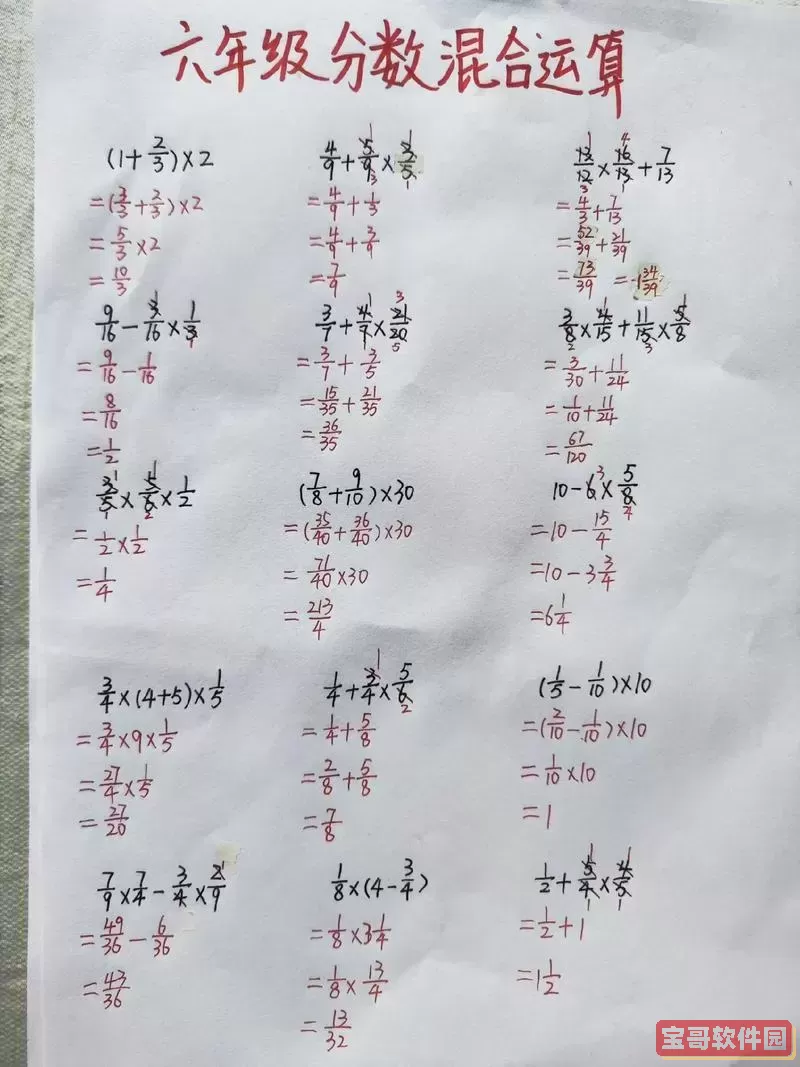 六年级分数混合运算
(1+2/3)×2
=(3/3+2/3)×2
=5/3×2
=10/3
4/9+5/9×3/5
=4/9+1/3
=4/9+3/9
=7/9
13/12×16/13+7/13
=4/3+7/13
=52/39+21/39
=73/39 =1 34/39
9/16-3/16×1/3
=9/16-1/16
=8/16
=1/2
3/7+4/7×21/20
=3/7+3/5
=15/35+21/35
=36/35
3/8×4/15+11/15×5/8
=3/30+11/24
=1/10+11/24
=67/120
3/5×5/6×1/2
=1/2×1/2
=1/4
(7/8+9/10)×30
=(35/40+36/40)×30
=71/40×30
=213/4
10-6×5/8
=10-15/4
=10-3 3/4
=6 1/4
3/4×(4+5)×1/5
=3/4×9×1/5
=27/4×1/5
=27/20
1/4+3/4×5/6
=1/4+5/8
=2/8+5/8
=7/8
(1/5-1/10)×10
=(2/10-1/10)×10
=1/10×10
=1
7/9×7/4-3/4×2/9
=49/36-6/36
=43/36
1/8×(4-3/4)
=1/8×3 1/4
=1/8×13/4
=13/32
1/2+5/4×4/5
=1/2+1
=1 1/2
宝哥软件园